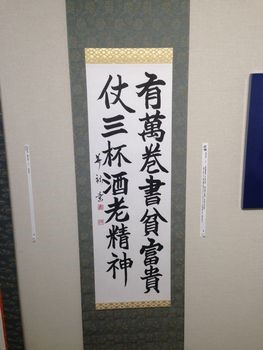 有萬卷書貧富貴
仗三杯酒老精神